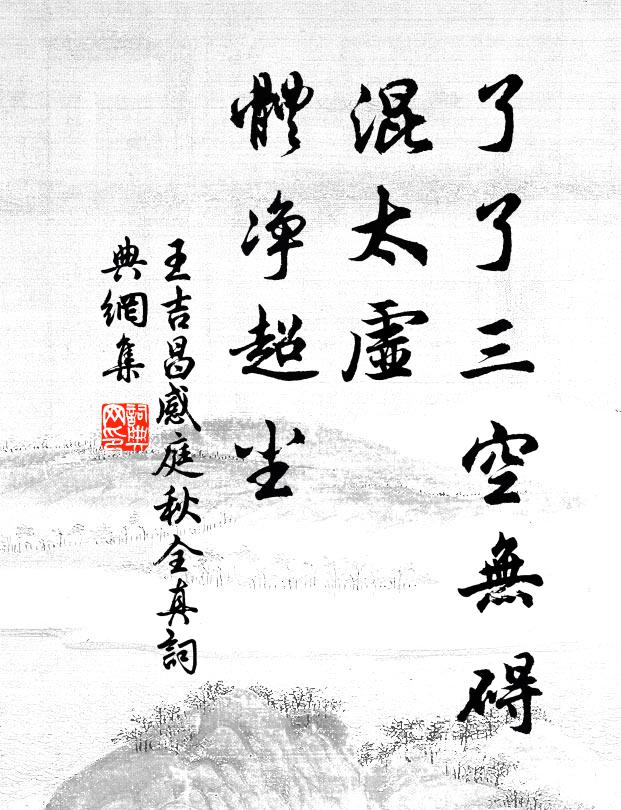 了了三空無碍
混太虛
體净超尘
王吉昌感庭秋全真詞
典網集
詞典
网印